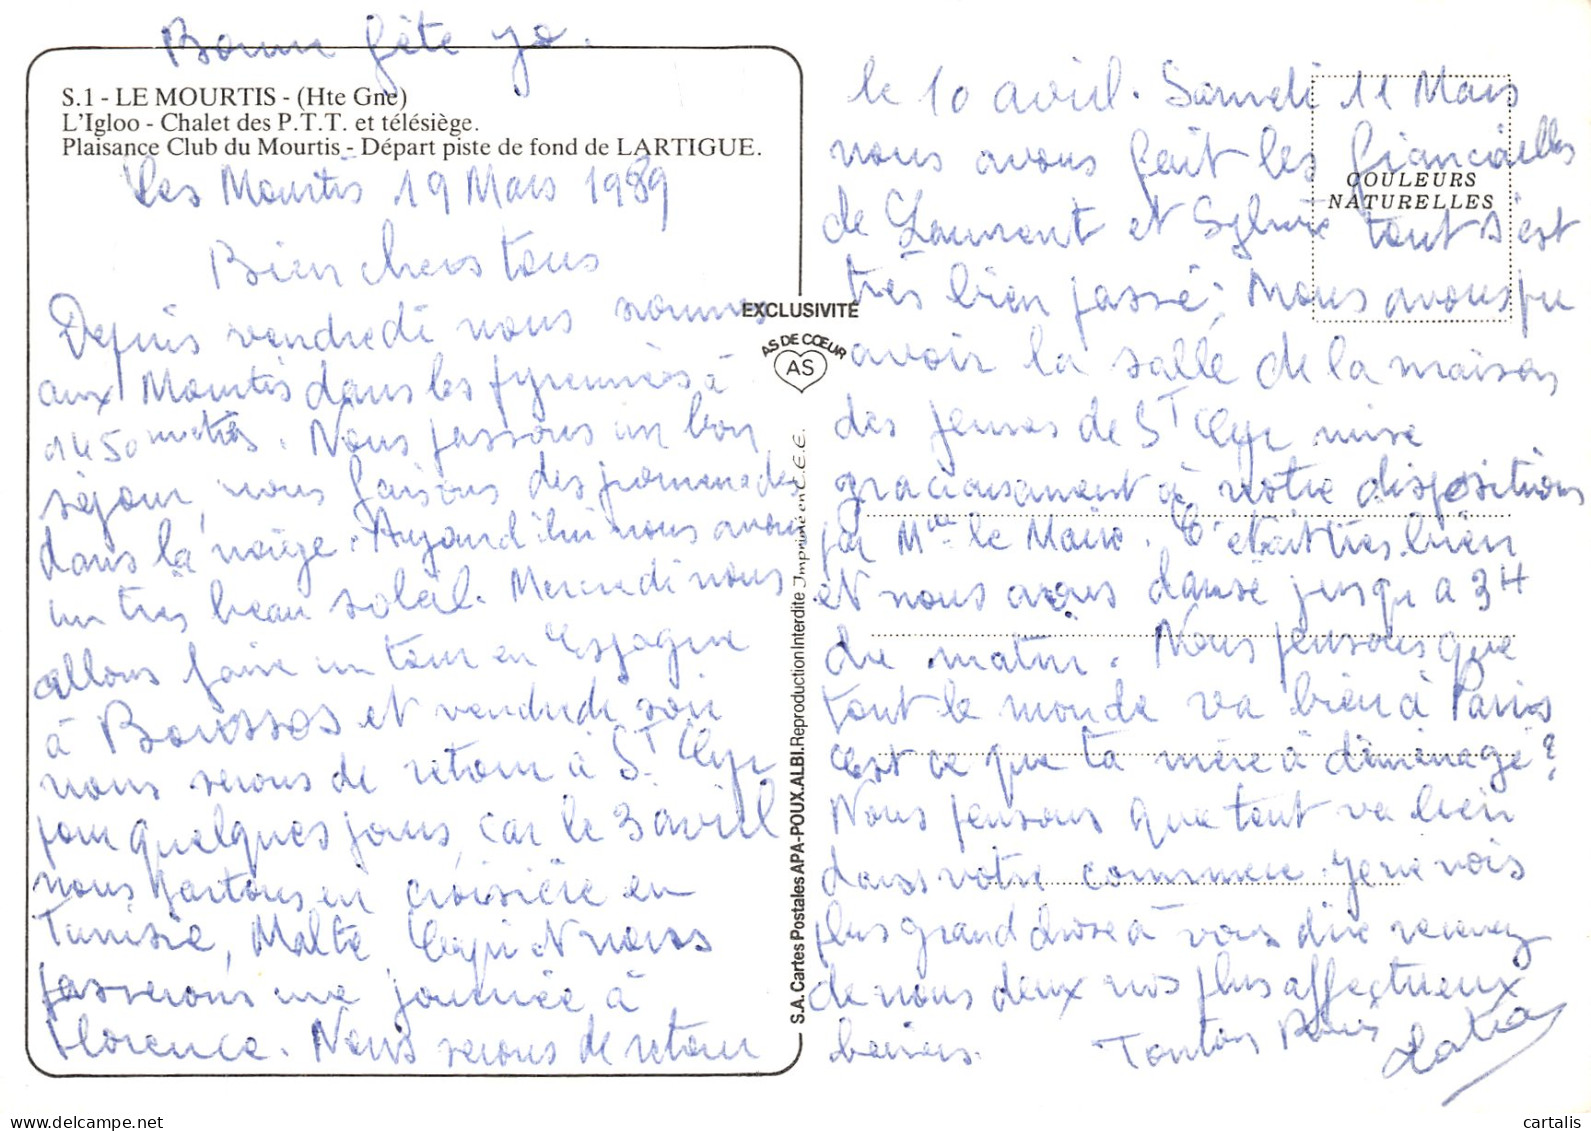 Bonne fête yo.
S.1 - LE MOURTIS - (Hte Gne)
L'Igloo - Chalet des P.T.T. et télésiège.
Plaisance Club du Mourtis - Départ piste de fond de LARTIGUE.
Les Mourtis 19 Mars 1989
Bien chers tous
Depuis vendredi nous sommes
aux Mourtis dans les pyrennées à
1450 mètres. Nous passons un bon
séjour, nous faisons des promenades
dans la neige. Aujourd'hui nous avons
un très beau soleil. Mercredi nous
allons faire un tour en Espagne
à Boussos et vendredi soir
nous serons de retour à St Cyr
pour quelques jours, car le 3 avril
nous partons en croisière en
Tunisie, Malte et nous
passerons une journée à
Florence. Nous serons de retour
le 10 avril. Samedi 11 Mars
nous avons fait les fiancailles
de Laurent et Sylvie tout s'est
très bien passé. Nous avons pu
avoir la salle de la maison
des jeunes de St Cyr mise
gracieusement à notre disposition
par Mr le Maire. C'était très bien
et nous avons dansé jusqu'a 3H
du matin. Nous pensons que
tout le monde va bien à Paris
Est ce que ta mère à déménagé?
Nous pensons que tout va bien
dans votre commerce. Je ne vois
plus grand chose à vous dire recevez
de nous deux nos plus affectueux
baisers. Tonton
EXCLUSIVITÉ
AS DE CŒUR
AS
COULEURS
NATURELLES
S.A. Cartes Postales APA-POUX. ALBI. Reproduction Interdite Imprimé en C.E.E.
www.delcampe.net
cartalis